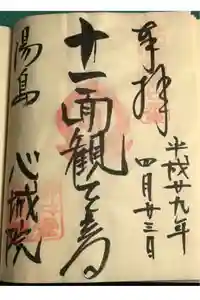 奉拝
平成廿九年
四月廿三日
十一面観世音
湯島 心城院